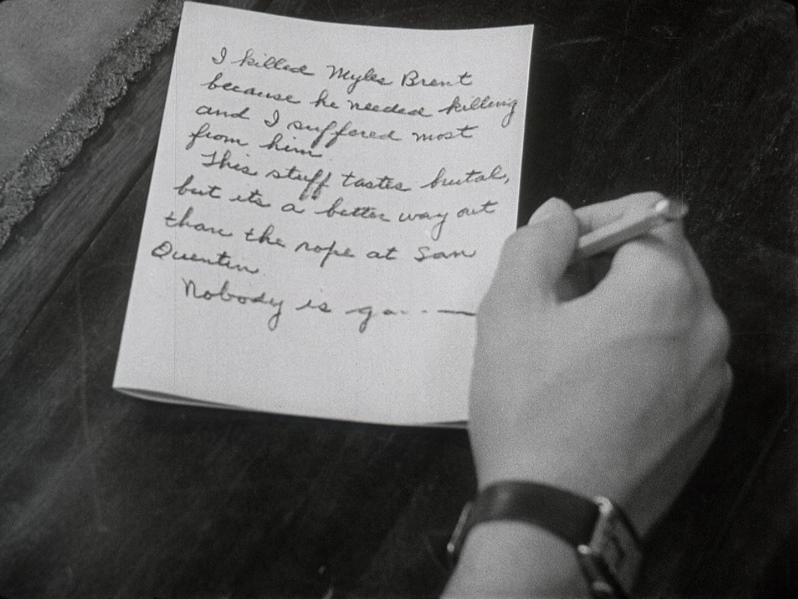 I killed Myles Brent
because he needed killing
and I suffered most
from him.
This stuff tastes brutal,
but its a better way out
than the rope at San
Quentin.
Nobody is ga.. —